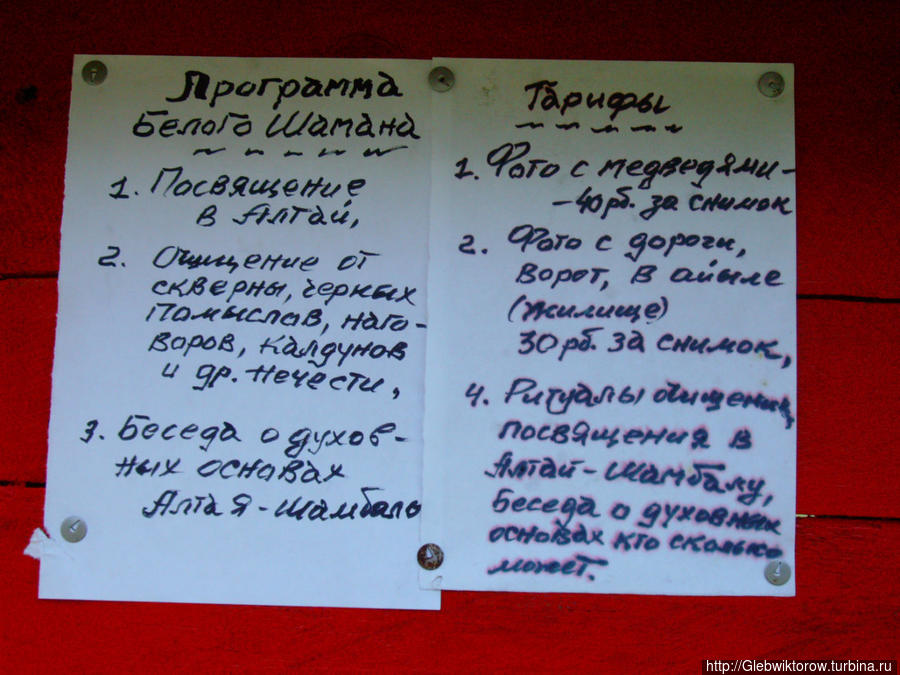 Программа
Белого Шамана
1. Посвящение
в Алтай,
2. Очищение от
скверны, черных
Помыслов, наго-
воров, калдунов
и др. нечести,
3. Беседа о духов-
ных основах
Алтая-Шамбалы
Тарифы
1. Фото с медведями-
-40рб. за снимок
2. Фото с дороги,
ворот, в айыле
(жилище)
30рб. за снимок,
4. Ритуалы очищения,
посвящения в
Алтай-Шамбалу,
Беседа о духовных
основах кто сколько
может.
http://Glebwiktorow.turbina.ru